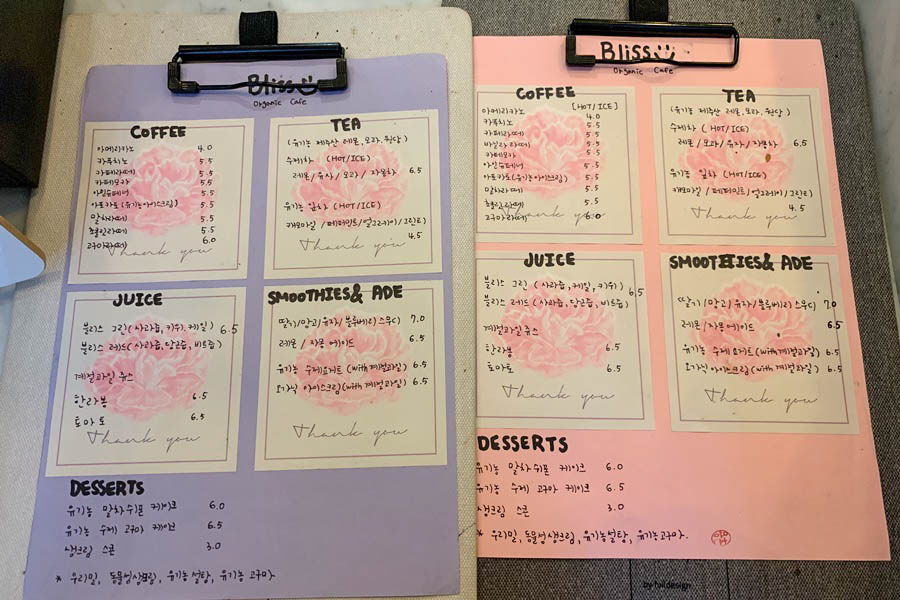 Bliss
Organic Cafe
COFFEE
아메리카노 4.0
카푸치노 5.5
카페라떼 5.5
카페모카 5.5
아인슈페너 5.5
아포카토(유기농아이스크림) 5.5
말차라떼 5.5
초콜릿라떼 5.5
고구마라떼 6.0
Thank you
TEA
(유기농 제주산 레몬, 모과, 원당)
수제차 (HOT/ICE)
레몬/유자/모과/자몽차 6.5
유기농 잎차 (HOT/ICE)
캐모마일/페퍼민트/얼그레이/그린티
4.5
Thank you
JUICE
블리스 그린(사과즙, 키위, 케일) 6.5
블리스 레드(사과즙, 당근즙, 비트즙)
계절과일 쥬스
한라봉 6.5
토마토 6.5
Thank you
SMOOTHIES & ADE
딸기/망고/유자/블루베리 스무디 7.0
레몬/자몽 에이드 6.5
유기농 수제요거트(with계절과일) 6.5
오가닉 아이스크림(with계절과일) 6.5
Thank you
DESSERTS
유기농 말차쉬폰 케이크 6.0
유기농 수제 고구마 케이크 6.5
생크림 스콘 3.0
* 우리밀, 동물성생크림, 유기농설탕, 유기농고구마
Bliss
Organic Cafe
COFFEE
[HOT/ICE]
아메리카노 4.0
카푸치노 5.5
카페라떼 5.5
바닐라라떼 5.5
카페모카 5.5
아인슈페너 5.5
아포카토(유기농아이스크림) 5.5
말차라떼 5.5
초콜릿라떼 5.5
고구마라떼 6.0
Thank you
TEA
(유기농 제주산 레몬, 모과, 원당)
수제차 (HOT/ICE)
레몬/모과/유자/자몽차 6.5
유기농 잎차 (HOT/ICE)
캐모마일/페퍼민트/얼그레이/그린티
4.5
Thank you
JUICE
블리스 그린(사과즙, 케일, 키위) 6.5
블리스 레드(사과즙, 당근즙, 비트즙)
계절과일 쥬스
한라봉 6.5
토마토 6.5
Thank you
SMOOTHIES & ADE
딸기/망고/유자/블루베리 스무디 7.0
레몬/자몽에이드 6.5
유기농 수제요거트(with계절과일) 6.5
오가닉 아이스크림(with계절과일) 6.5
Thank you
DESSERTS
유기농 말차쉬폰 케이크 6.0
유기농 수제 고구마 케이크 6.5
생크림 스콘 3.0
* 우리밀, 동물성생크림, 유기농설탕, 유기농고구마.